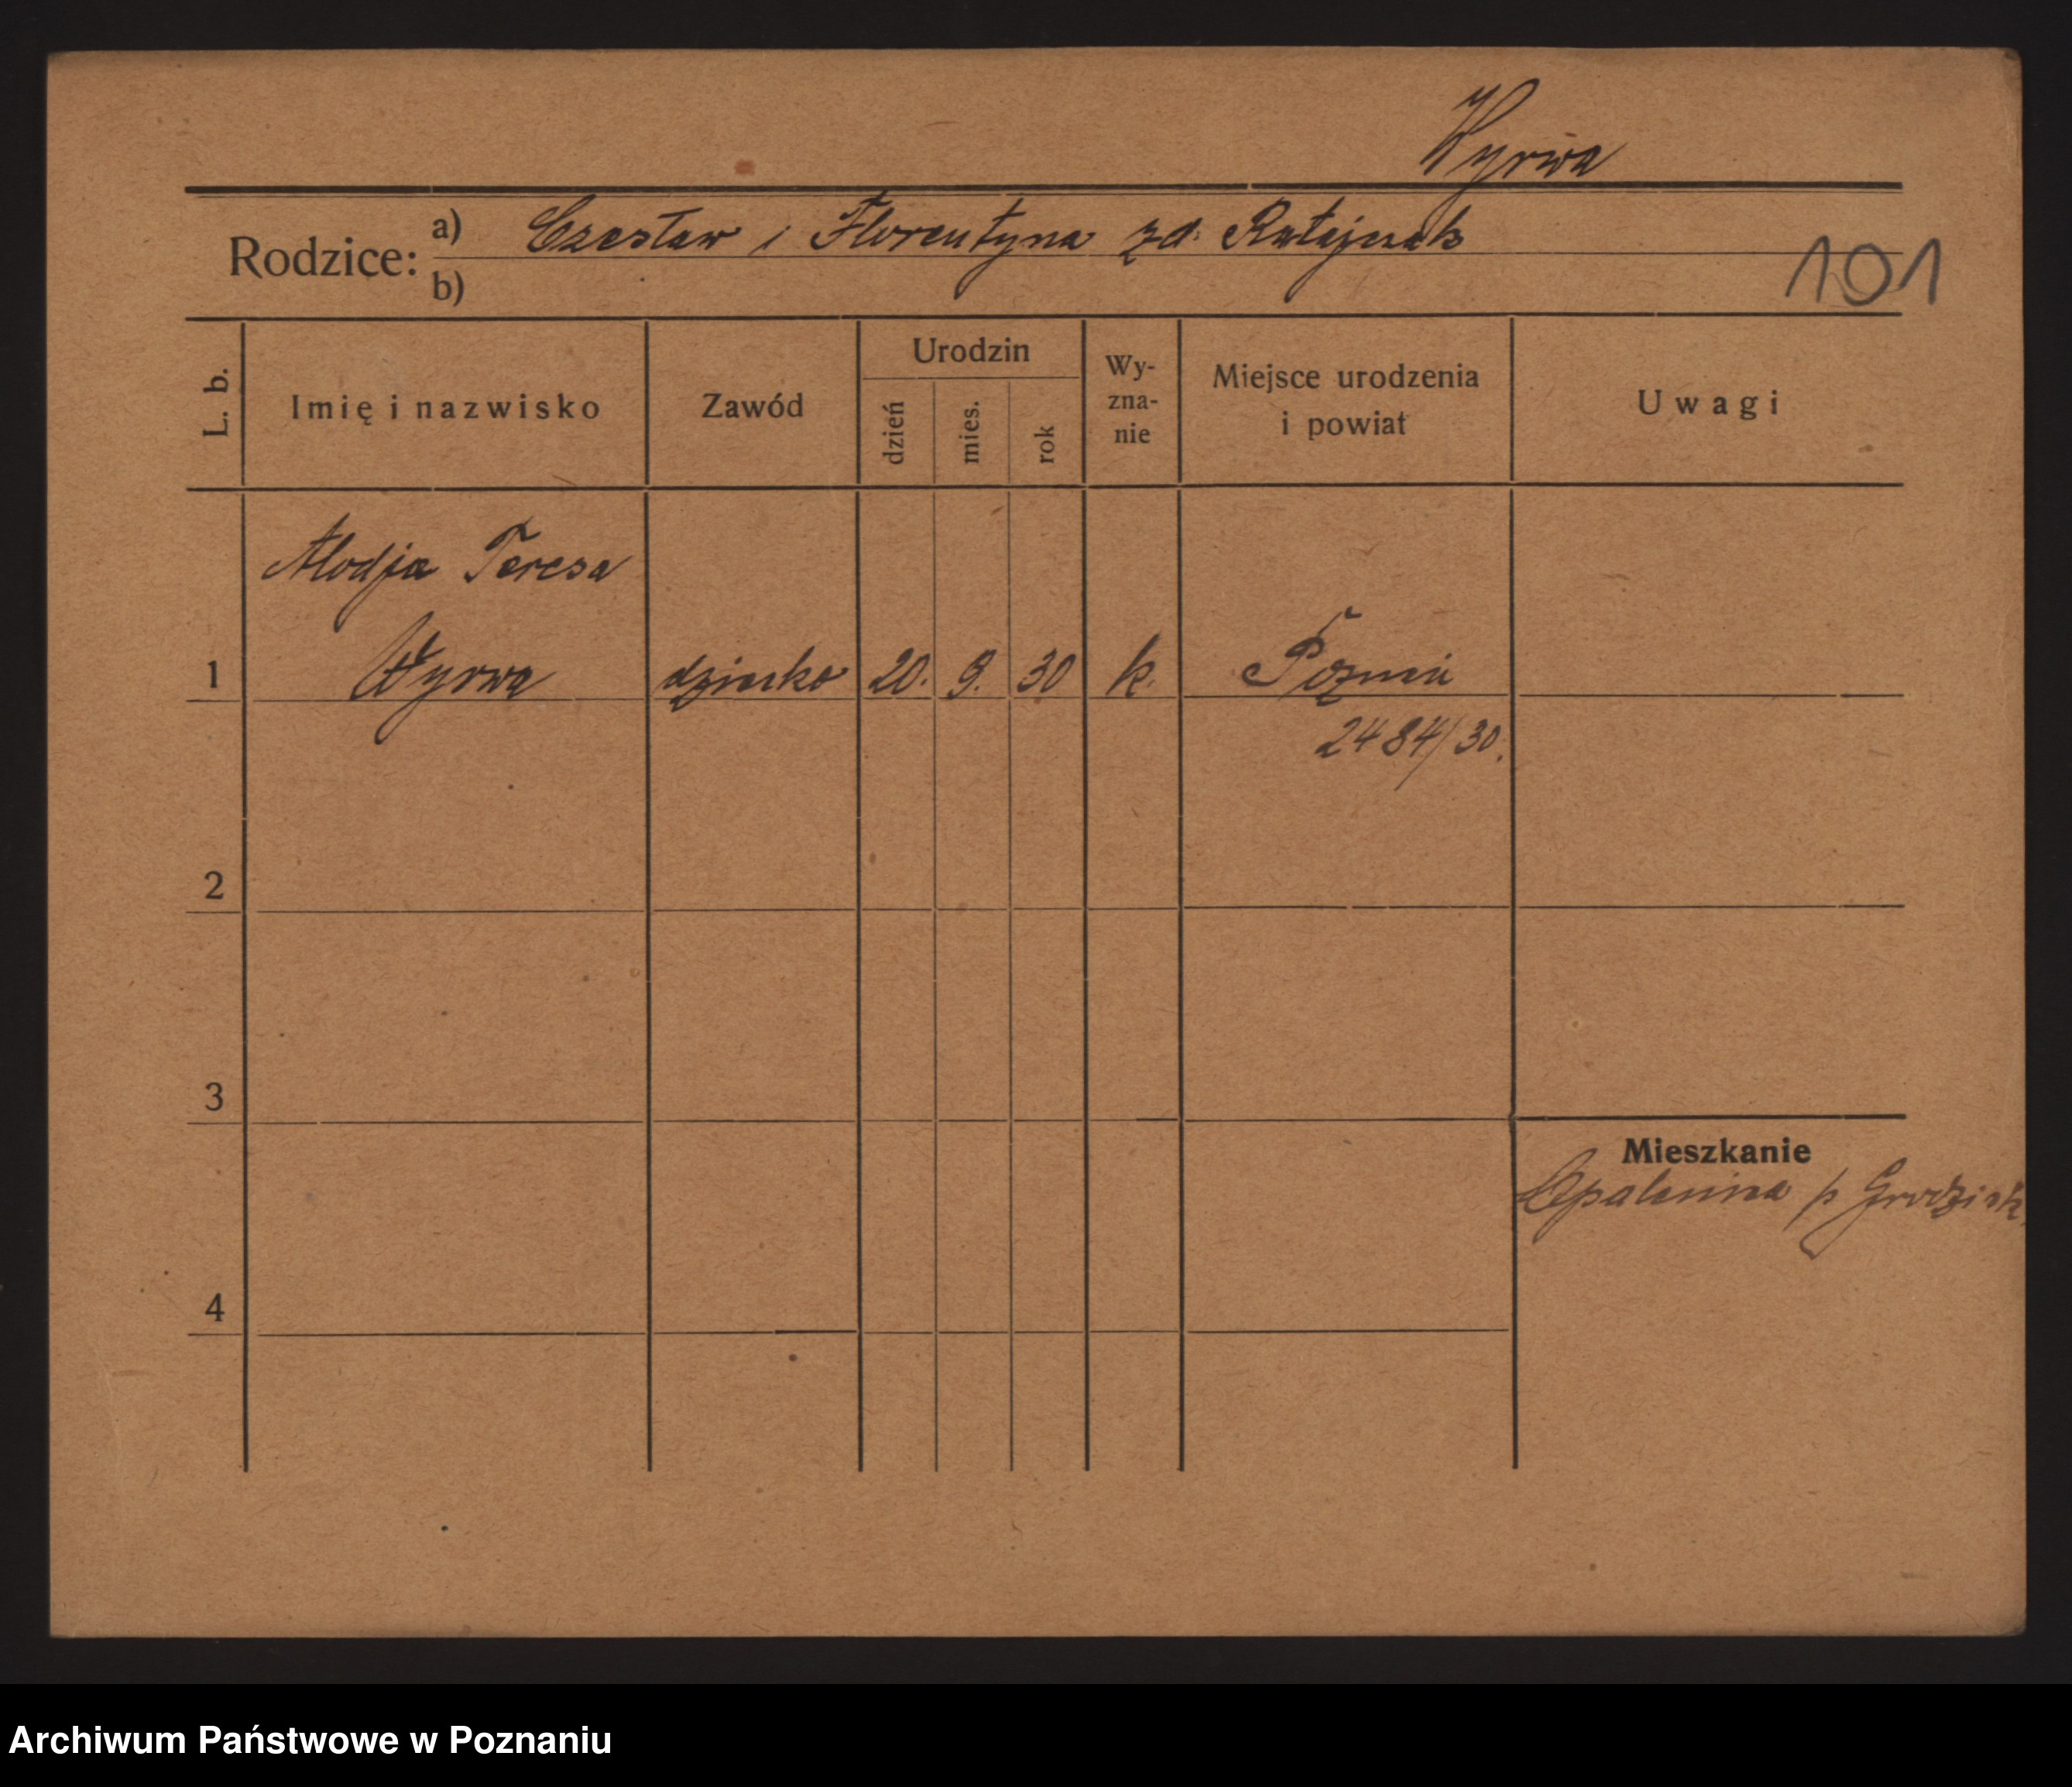 Wyrwa
Rodzice: a) Czesław i Florentyna zd. Ratajczak
b)
101
L. b.
Imię i nazwisko
Zawód
Urodzin
dzień
mies.
rok
Wy-
zna-
nie
Miejsce urodzenia
i powiat
Uwagi
Alodja Teresa
1 Wyrwa dziecko 20. 9. 30 k. Poznań
2484/30.
2
3
Mieszkanie
Opalenica p Grodzisk
4
Archiwum Państwowe w Poznaniu